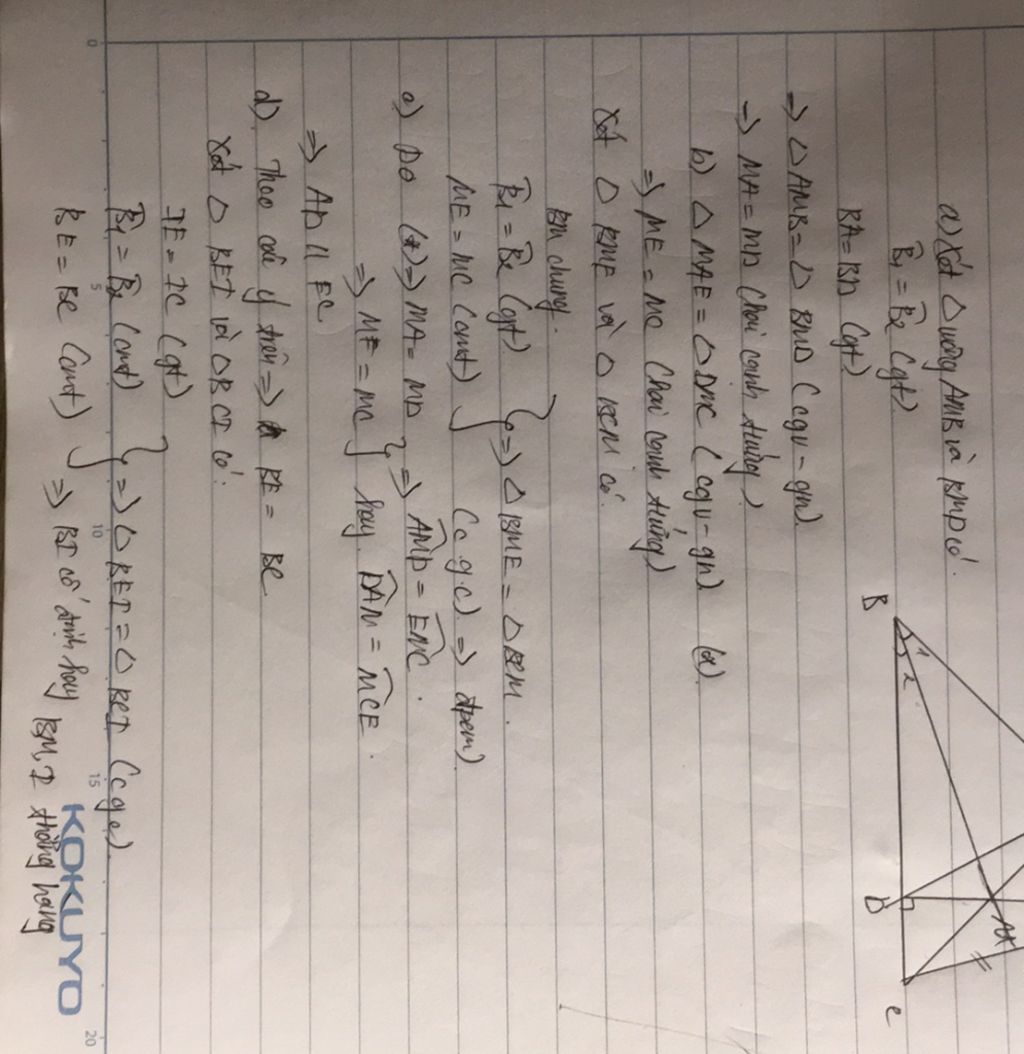 a) Xét △ vuông AMB và BMD có:
B̂1 = B̂2 (gt)
BA = BD (gt)
=> △ AMB = △ BMD (cgv - gn)
=> MA = MD (hai cạnh tương)
b) △ MAE = △ DMC (cgv - gn) (*)
=> ME = MC (hai cạnh tương)
Xét △ BME và △ BCM có
BM chung.
B̂1 = B̂2 (gt) } => △ BME = △ BCM.
ME = MC (cmt) (c.g.c) => đpcm)
c) Do (*) => MA = MD } => AMD = EMC.
=> ME = MC } hay DAM = MCE.
=> AD // EC
d) Theo câu ý trên => BE = BC
Xét △ BEI và △ BCI có:
IE = IC (gt)
B̂1 = B̂2 (cmt) } => △ BEI = △ BCI (cgc).
BE = BC (cmt) => BI cố định hay BM, I thẳng hàng
B
1
2
D
M
C
KOKUYO
0
5
10
15
20